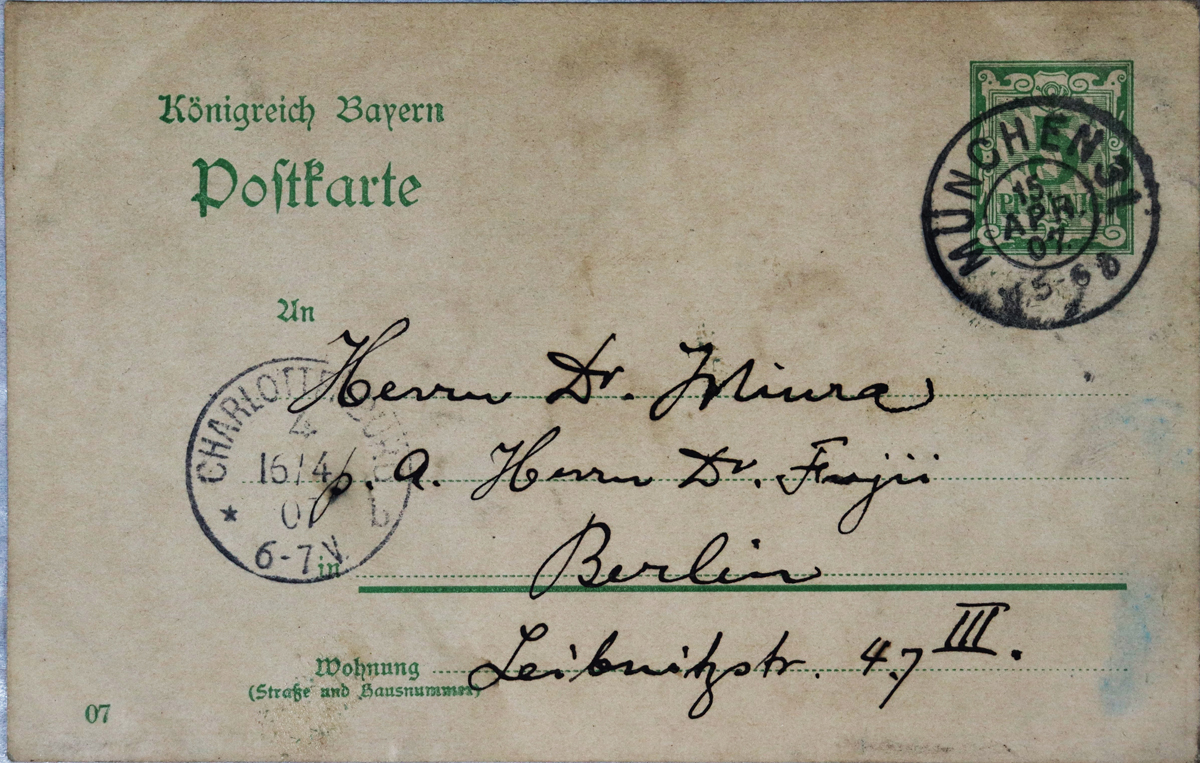 Königreich Bayern
Postkarte
5
PFENNIG
MÜNCHEN 31
15.
APR.
07.
5-6
An
Herrn Dr. Miura
p. A. Herrn Dr. Fujii
in Berlin
Wohnung Leibnitzstr. 47 III.
(Straße und Hausnummer)
07
CHARLOTTENBURG
4
16/4
07
6-7.V.
b